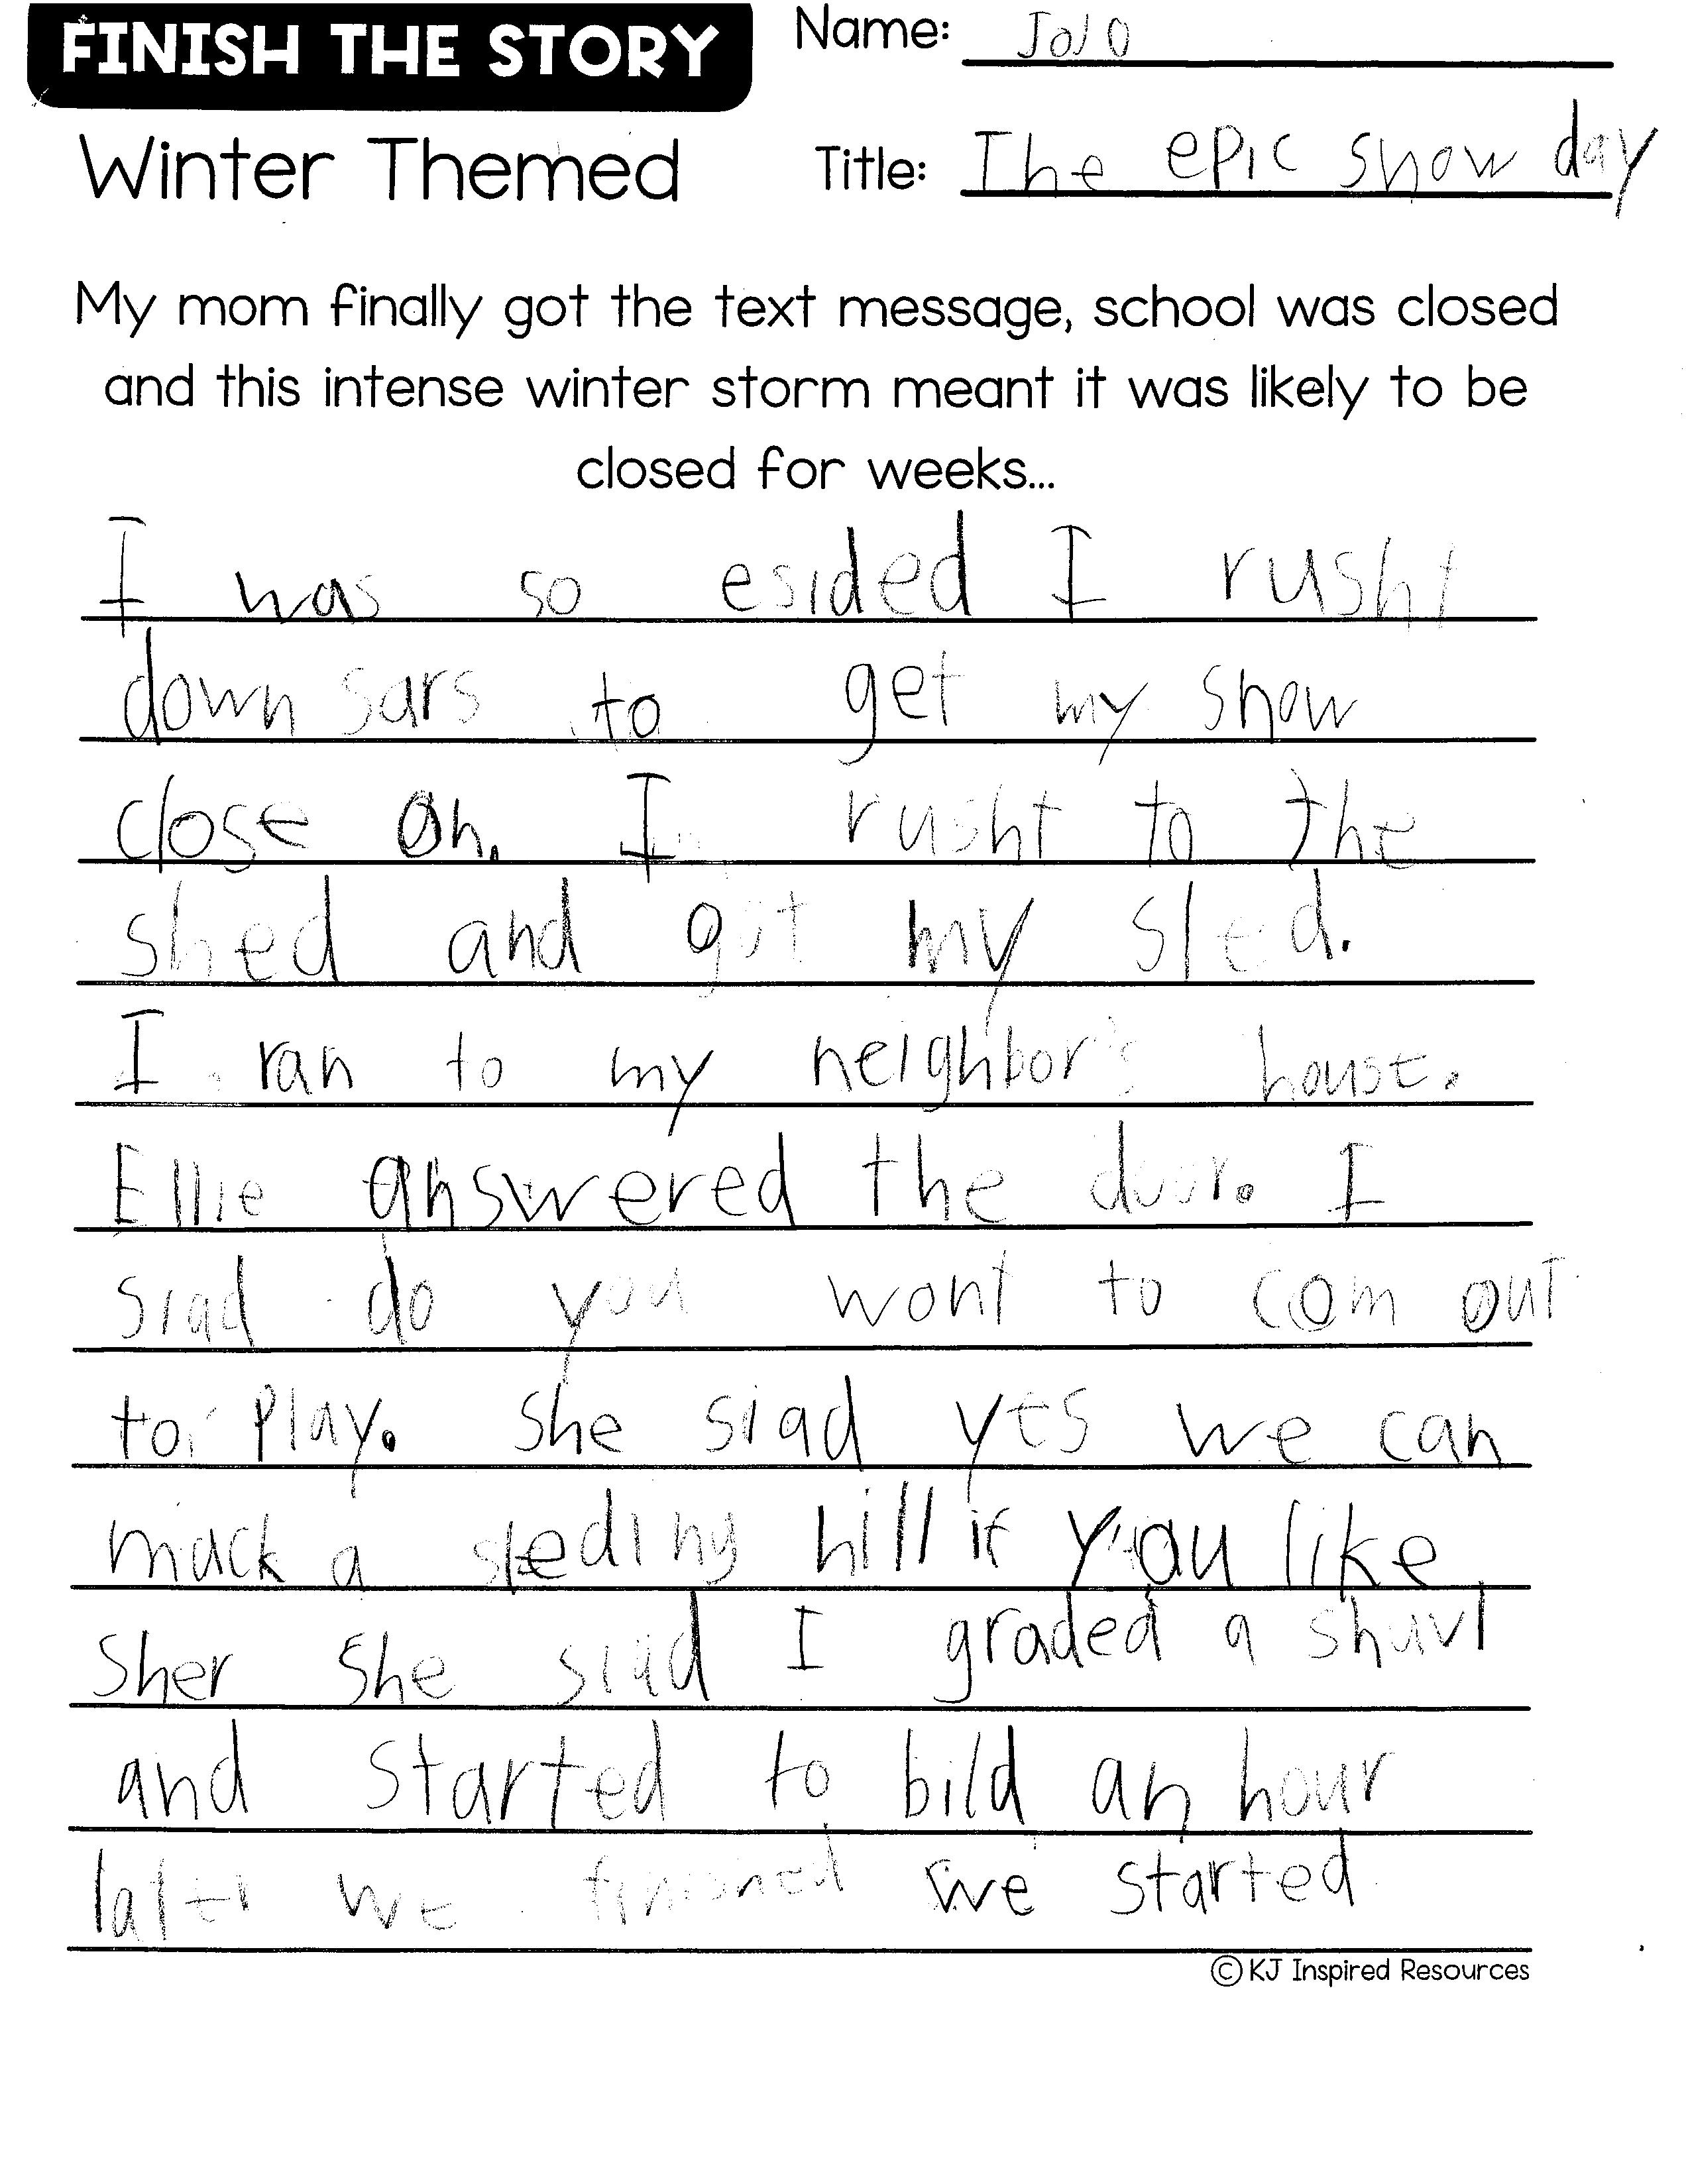 FINISH THE STORY
Name: JoJo
Winter Themed
Title: The epic snow day
My mom finally got the text message, school was closed
and this intense winter storm meant it was likely to be
closed for weeks...
I was so esided I rusht
down sars to get my snow
close on. I rusht to the
shed and got my sled.
I ran to my neighbor's house.
Ellie answered the door. I
siad do you wont to com out
to play. She siad yes we can
mack a sleding hill if you like
Sher she siad I graded a shuvl
and started to bild an hour
later we finished we started
©KJ Inspired Resources